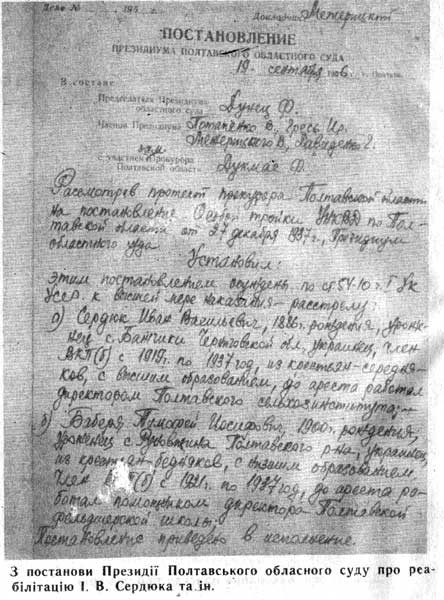 Дело № 195 г.
Докладчик Мещерицкий
ПОСТАНОВЛЕНИЕ
ПРЕЗИДИУМА ПОЛТАВСКОГО ОБЛАСТНОГО СУДА
19 сентября 1956 г. г. Полтава
В составе
Председателя Президиума Дунец Ф.
областного суда
Членов Президиума Потапенко В., Гресь Ир.
Мещерицкого В., Давиденко Г.
с участием зам. Прокурора
Полтавской области Дукмас Ф.
Рассмотрев протест прокурора Полтавской области
на постановление Особой тройки УНКВД по Пол-
тавской области от 27 декабря 1937 г., Президиум
областного суда
Установил:
этим постановлением осужден по ст. 54-10 ч. I УК
УССР к высшей мере наказания – расстрелу:
а) Сердюк Иван Васильевич, 1886 г. рождения, урож-
нец с. Черниговской обл., украинец, член
ВКП(б) с 1919 г. по 1937 год, из крестьян-середня-
ков, с высшим образованием, до ареста работал
директором Полтавского сельхозинститута;
б) Ваберя Тимофей Иосифович, 1900 г. рождения,
уроженец с. Полтавского р-на, украинец,
из крестьян-бедняков, с низшим образованием
член ВКП(б) с 1921 г. по 1937 год, до ареста ра-
ботал помощником директора Полтавской
фельдшерской школы.
Постановление приведено в исполнение.
З постанови Президії Полтавського обласного суду про реа-
білітацію І. В. Сердюка та ін.